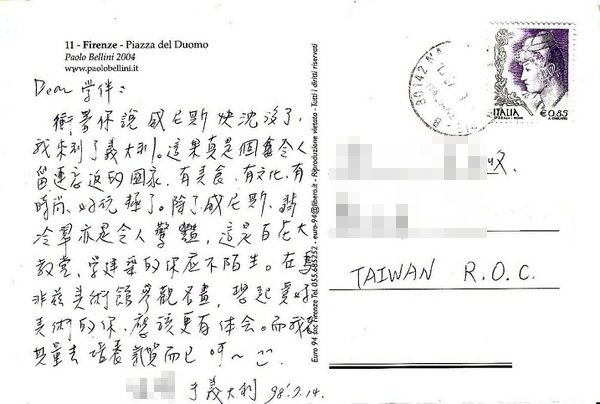 11 - Firenze - Piazza del Duomo
Paolo Bellini 2004
www.paolobellini.it
Dear 学伴:
衝著你說 威尼斯 快沈沒了,
我来到了義大利。這果真是個會令人
留連忘返的國家,有美食,有文化,有
時尚,好玩極了。除了威尼斯,翡
冷翠亦是令人驚豔,這是百花大
教堂,学建築的你应不陌生。在烏
非茲美術館參觀
美術的你,應該更有体会。而我
去培養氣質而已 呵~
于義大利 98'.7.14.
Euro 94 snc Firenze Tel 055.685252 - euro-94@libero.it - Riproduzione vietata - Tutti i diritti riservati
80142
ITALIA
€0,85
TAIWAN R.O.C.